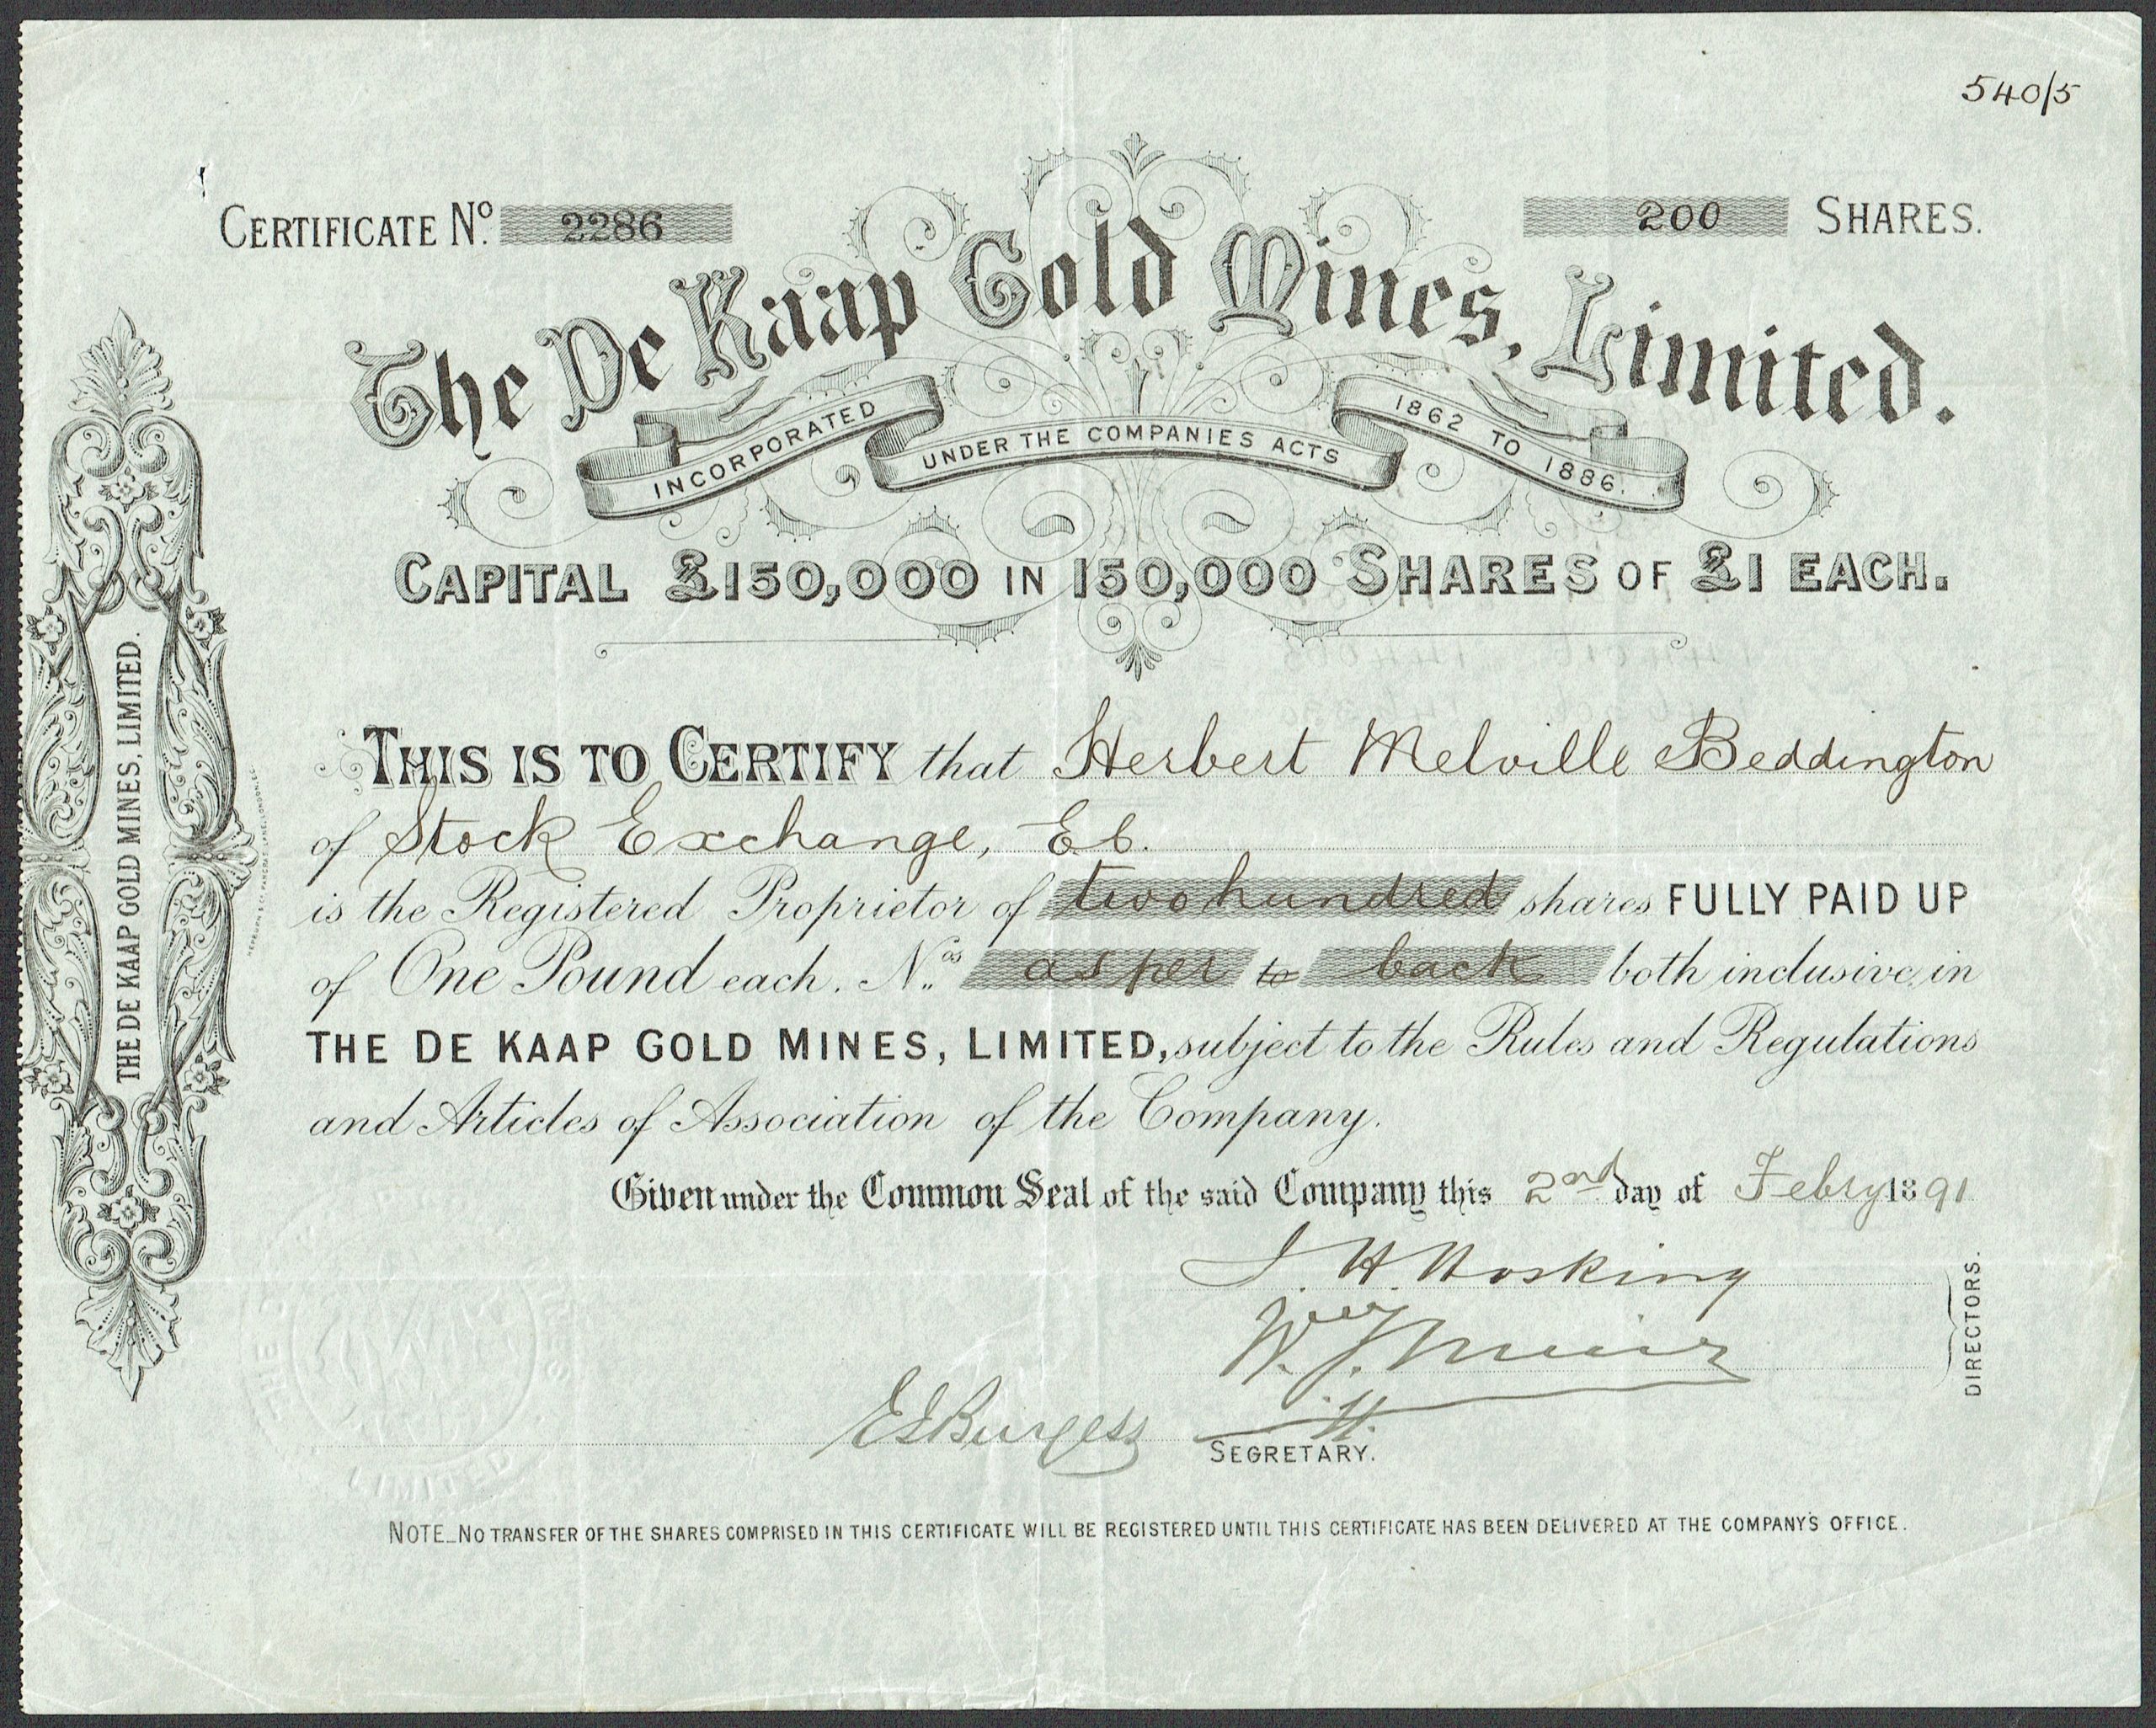 540/5
CERTIFICATE No. 2286
200 SHARES.
The De Kaap Gold Mines, Limited.
INCORPORATED UNDER THE COMPANIES ACTS 1862 TO 1886.
CAPITAL £150,000 IN 150,000 SHARES OF £1 EACH.
THE DE KAAP GOLD MINES, LIMITED.
THIS IS TO CERTIFY that Herbert Melville Beddington
of Stock Exchange, E.C.
is the Registered Proprietor of two hundred shares FULLY PAID UP
of One Pound each. Nos. as per to back both inclusive, in
THE DE KAAP GOLD MINES, LIMITED, subject to the Rules and Regulations
and Articles of Association of the Company.
Given under the Common Seal of the said Company this 2nd day of Febry 1891
J. H. Hosking
W. J. Muir
DIRECTORS.
E S Burgess
SEGRETARY.
LIMITED
NOTE_NO TRANSFER OF THE SHARES COMPRISED IN THIS CERTIFICATE WILL BE REGISTERED UNTIL THIS CERTIFICATE HAS BEEN DELIVERED AT THE COMPANY'S OFFICE.